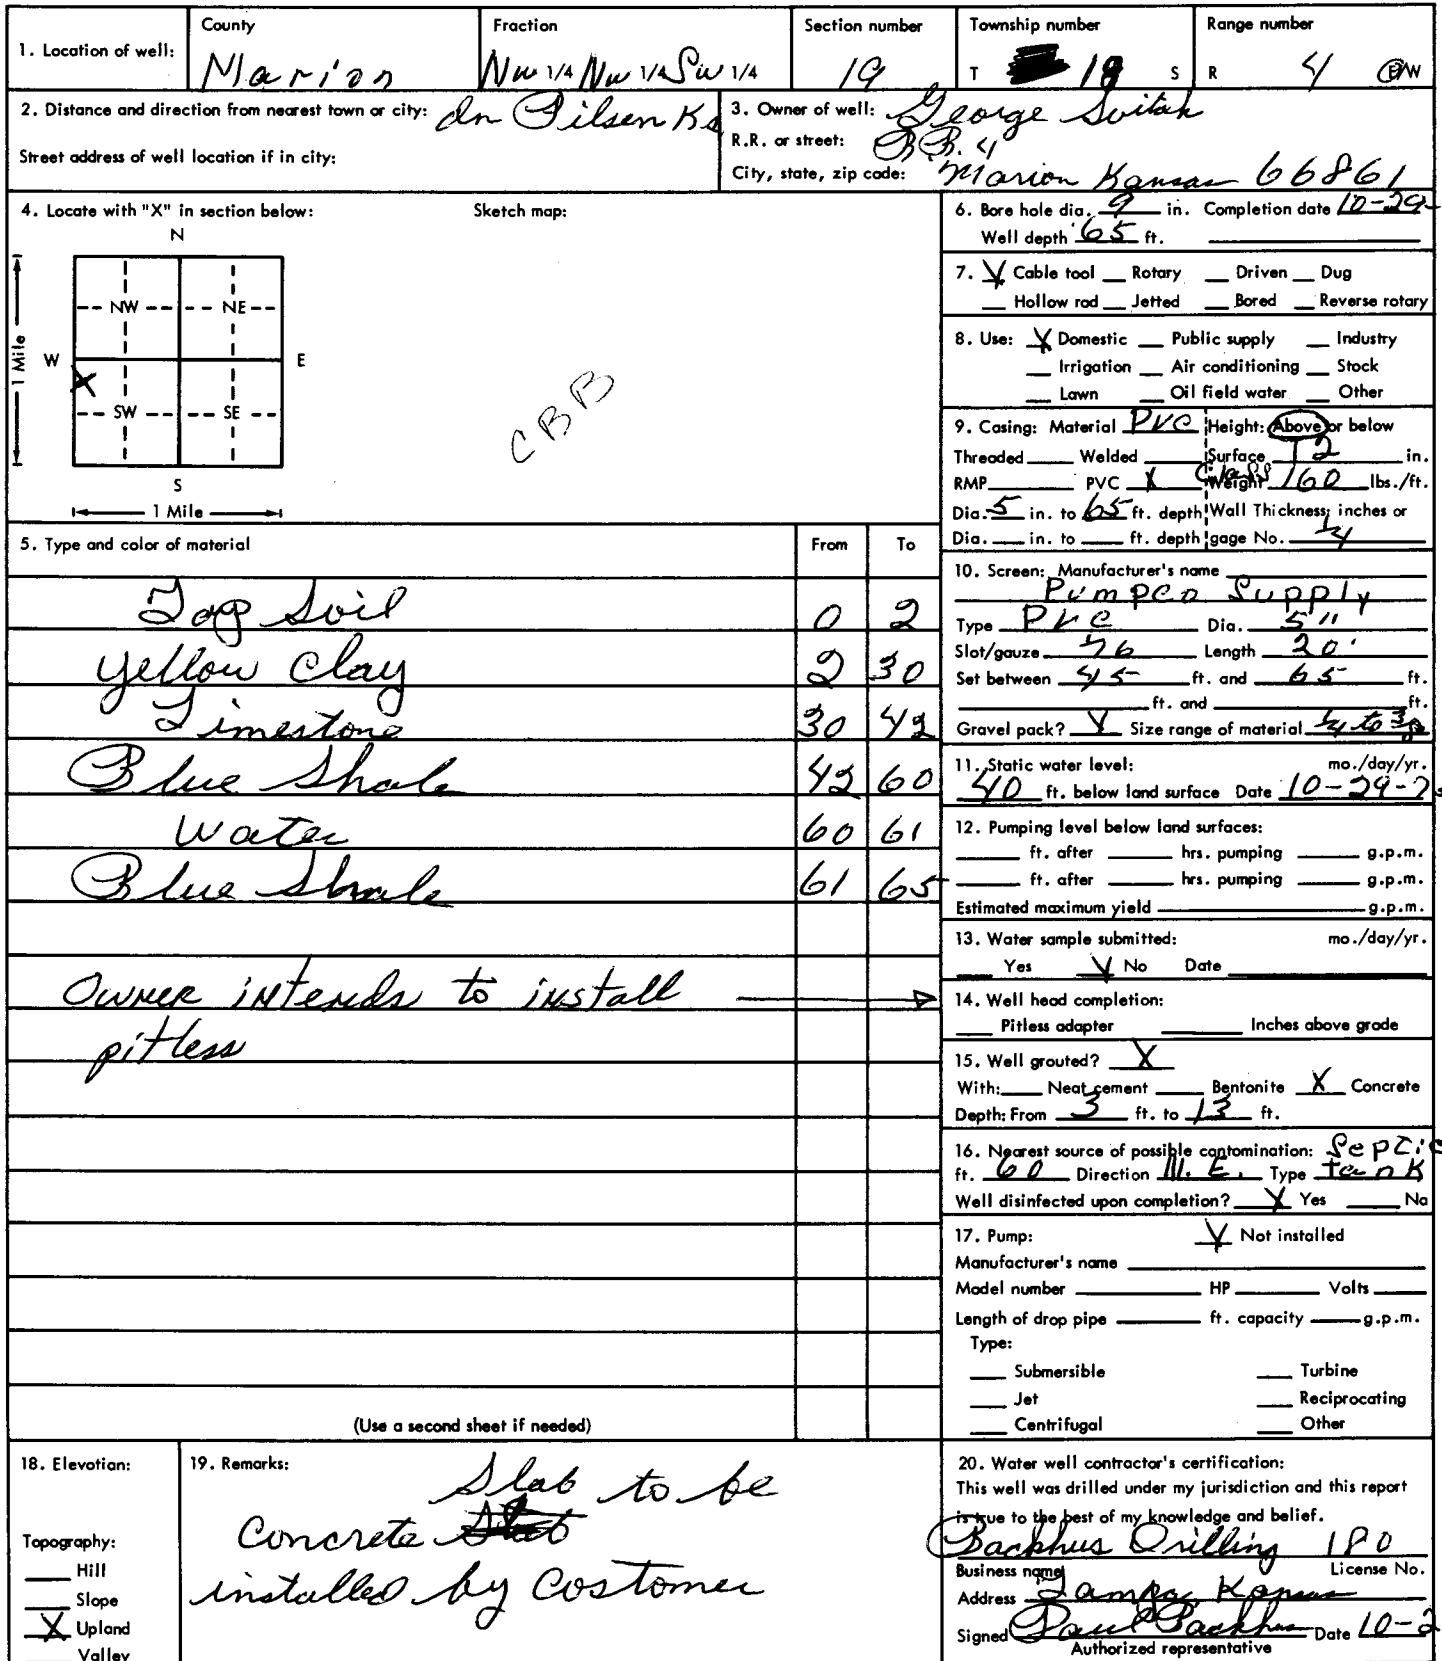 1. Location of well:
County
Marion
Fraction
NW 1/4 NW 1/4 SW 1/4
Section number
19
Township number
T 18 S
Range number
R 4 E/W
2. Distance and direction from nearest town or city: In Pilsen Ks
Street address of well location if in city:
3. Owner of well: George Svitak
R.R. or street: RR. 4
City, state, zip code: Marion Kansas 66861
4. Locate with "X" in section below:
Sketch map:
N
NW NE
W E
X
SW SE
S
1 Mile
1 Mile
CBB
5. Type and color of material From To
Top Soil 0 2
Yellow Clay 2 30
Limestone 30 42
Blue Shale 42 60
Water 60 61
Blue Shale 61 65
Owner intends to install
pitless
(Use a second sheet if needed)
6. Bore hole dia. 9 in. Completion date 10-29-
Well depth 65 ft.
7. X Cable tool Rotary Driven Dug
Hollow rod Jetted Bored Reverse rotary
8. Use: X Domestic Public supply Industry
Irrigation Air conditioning Stock
Lawn Oil field water Other
9. Casing: Material PVC Height: Above or below
Threaded Welded Surface 12 in.
RMP PVC X Class Weight 160 lbs./ft.
Dia. 5 in. to 65 ft. depth Wall Thickness; inches or
Dia. in. to ft. depth gage No. 1/4
10. Screen: Manufacturer's name
Pumpco Supply
Type PVC Dia. 5"
Slot/gauze Length 20'
Set between 45 ft. and 65 ft.
ft. and ft.
Gravel pack? X Size range of material 1/4 to 3/8
11. Static water level: mo./day/yr.
40 ft. below land surface Date 10-29-7
12. Pumping level below land surfaces:
ft. after hrs. pumping g.p.m.
ft. after hrs. pumping g.p.m.
Estimated maximum yield g.p.m.
13. Water sample submitted: mo./day/yr.
Yes X No Date
14. Well head completion:
Pitless adapter Inches above grade
15. Well grouted? X
With: Neat cement Bentonite X Concrete
Depth: From 3 ft. to 13 ft.
16. Nearest source of possible contomination: Septic
ft. 60 Direction N.E. Type tank
Well disinfected upon completion? X Yes No
17. Pump: X Not installed
Manufacturer's name
Model number HP Volts
Length of drop pipe ft. capacity g.p.m.
Type:
Submersible Turbine
Jet Reciprocating
Centrifugal Other
18. Elevation:
Topography:
Hill
Slope
X Upland
Valley
19. Remarks:
Slab to be
Concrete
installed by Costomer
20. Water well contractor's certification:
This well was drilled under my jurisdiction and this report
is true to the best of my knowledge and belief.
Backhus Drilling 180
Business name License No.
Address Tampa, Kansas
Signed Paul Backhus Date 10-2
Authorized representative